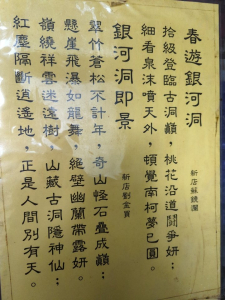 春遊銀河洞
新店蘇鏡瀾
拾級登臨古洞巔，桃花沿道鬪爭妍；
細看泉沫噴天外，頓覺南柯夢已圓。
銀河洞即景
新店劉金寶
翠竹蒼松不計年，奇山怪石疊成巔；
懸崖飛瀑如龍舞，絕壁幽蘭帶露妍。
嶺繞祥雲迷遠樹，山藏古洞隱神仙；
紅塵隔斷逍遙地，正是人間別有天。